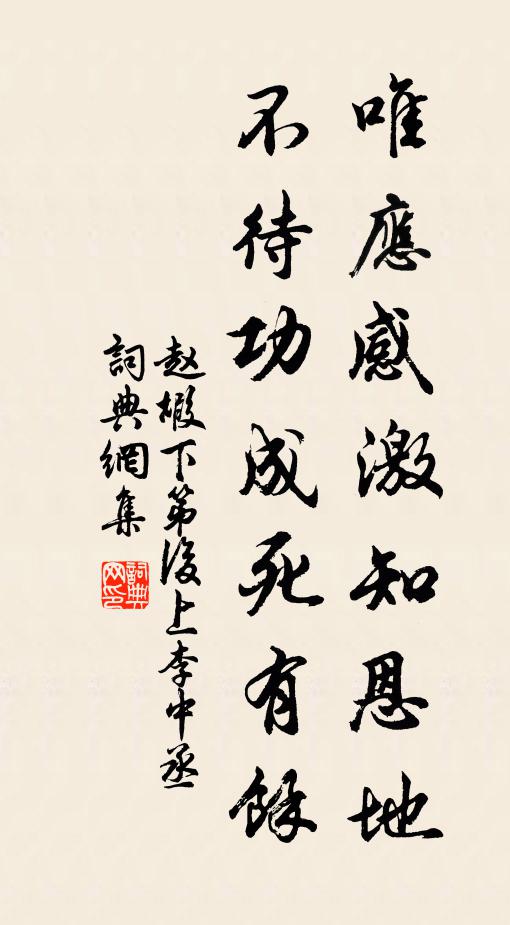 唯應感激知恩地
不待功成死有餘
赵嘏下第後上李中丞
詞典網集
詞典網印